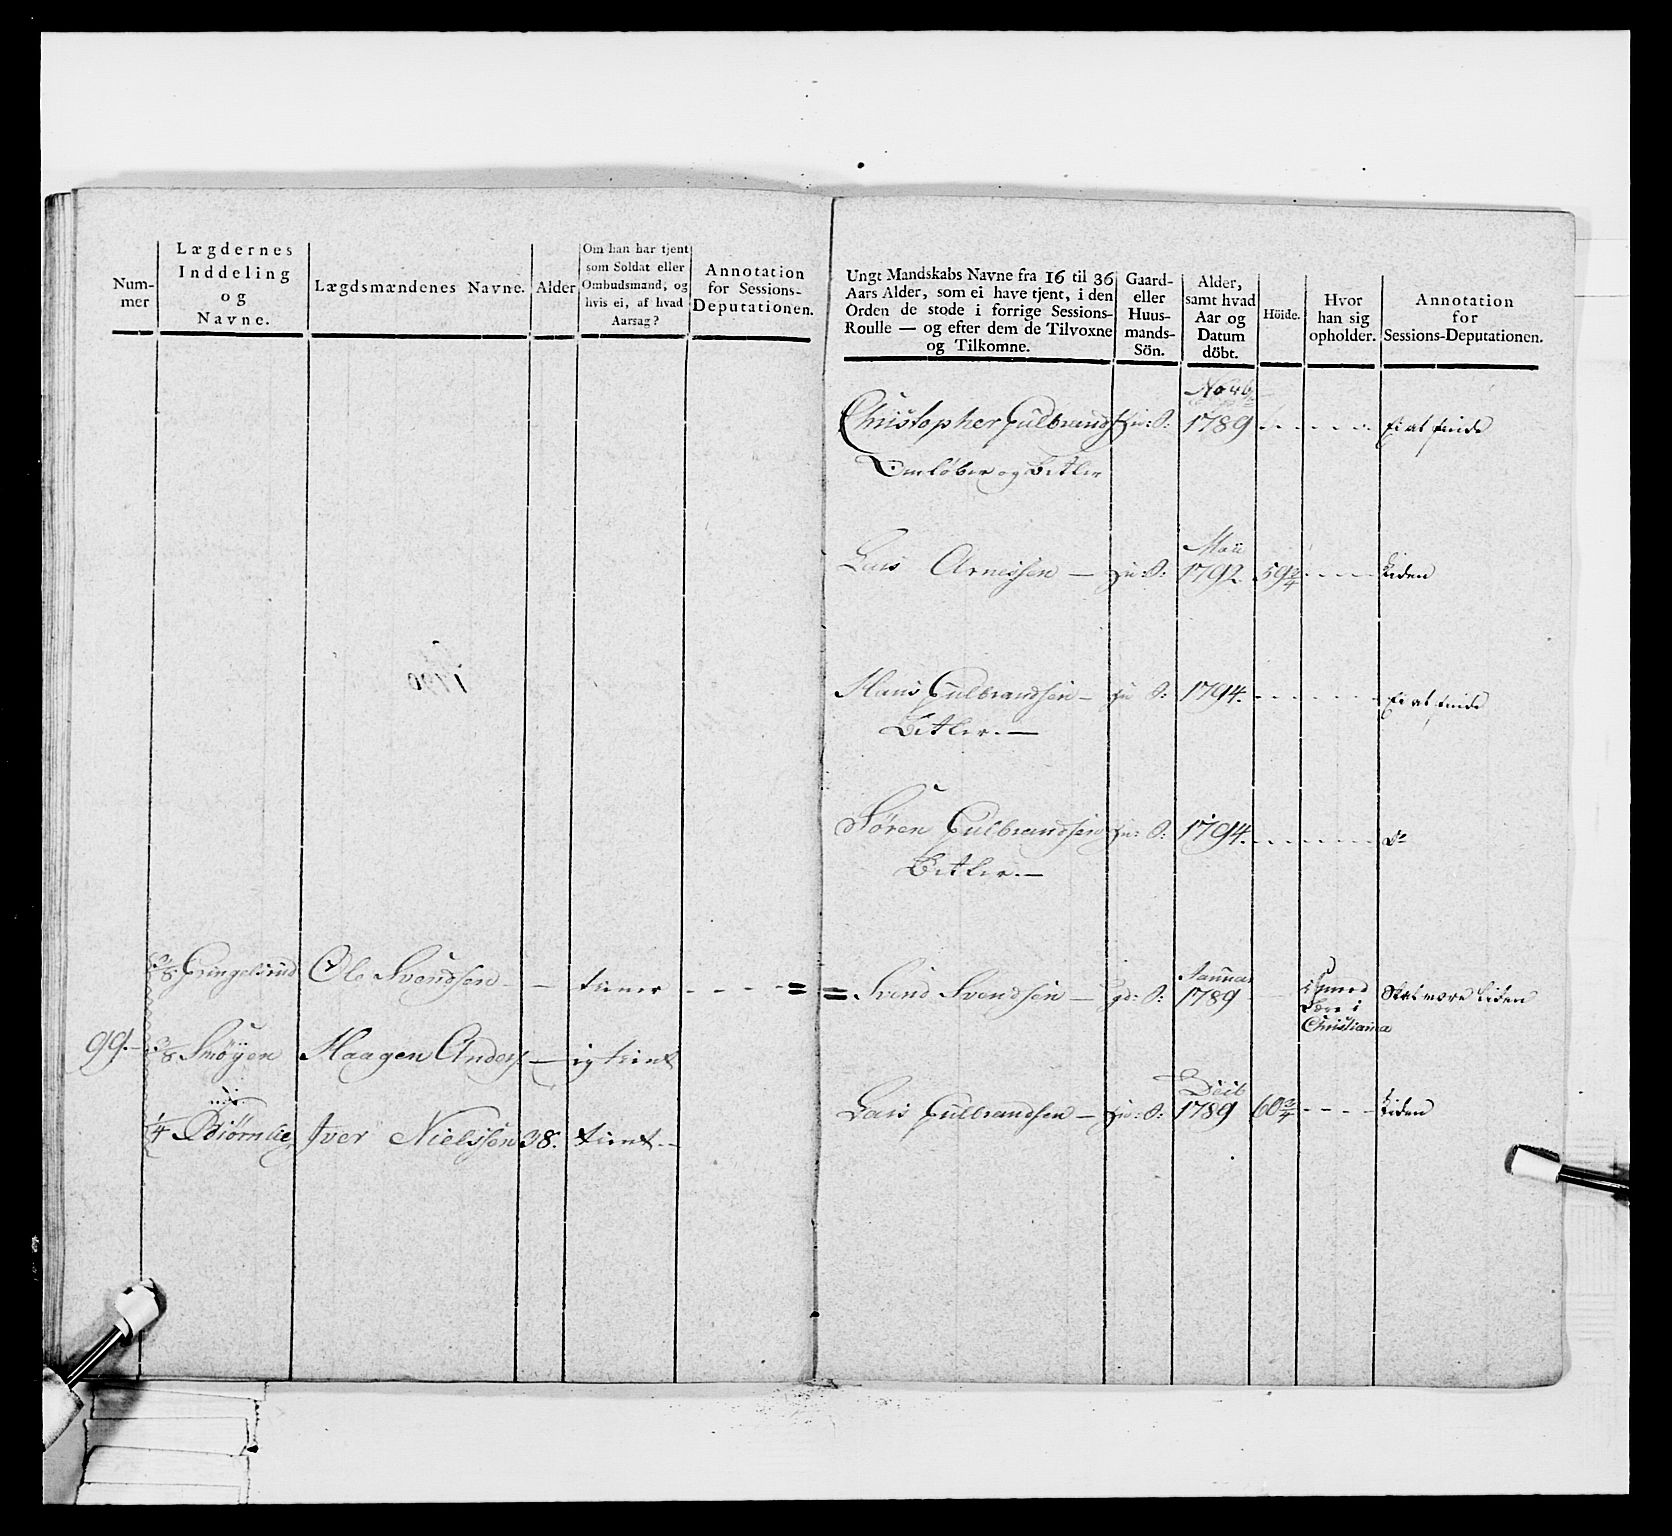 Num-
mer
Lægdernes
Inddeling
og
Navne.
Lægdsmændenes Navne.
Alder
Om han har tjent
som Soldat eller
Ombudsmand, og
hvis ei, af hvad
Aarsag?
Annotation
for Sessions-
Deputationen.
3/8 Gringelsrud Ole Svendsen - - tiener - - - - =
99. - 3/8 Smöyen Haagen Anders. - ig tient
1/4 Biörnlie Iver Nielssen 38. tient. -
Ungt Mandskabs Navne fra 16 til 36
Aars Alder, som ei have tjent, i den
Orden de stode i forrige Sessions-
Roulle — og efter dem de Tilvoxne
og Tilkomne.
Gaard-
eller
Huus-
mands-
Sön.
Alder,
samt hvad
Aar og
Datum
döbt.
Höide.
Hvor
han sig
opholder.
Annotation
for
Sessions-Deputationen.
Novb
Christopher Gulbrands. Hu: S: 1789 - - - - - - Ei at finde
Omløber og Betler
Maii
Lars Arnessen — Hu: S: 1792 59 3/4 - - - - Liden
Hans Gulbrandsen — Hu S: 1794. - - - - - - Ei at finde
Betler. —
Søren Gulbrandsen Hu: S: 1794. - - - - - - Do
Betler. —
Januar
= Svend Svendsen — gd: S: 1789 - Skal være liden
Lære i
Christiania
Decb
Lars Gulbrandsen — Hu: S: 1789 60 3/4 - - - - Liden